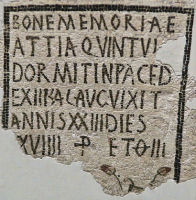 BONEMEMORIAE
ATTIAQVINTVI
DORMITINPACED
EXIIKALAVCVIXIT
ANNISXXIIIDIES
XVIIII ET